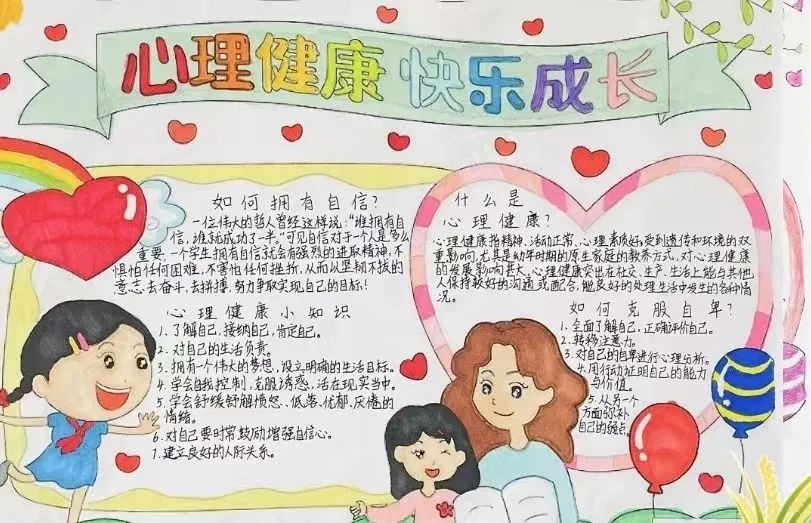 心理健康 快乐成长
如何拥有自信?
一位伟大的哲人曾经这样说:“谁拥有自
信,谁就成功了一半。”可见自信对于一个人是多么
重要,一个学生拥有自信就会有强烈的进取精神,不
惧怕任何困难,不害怕任何挫折,从而以坚韧不拔的
意志去奋斗、去拼搏,努力争取实现自己的目标!
心理健康小知识
1.了解自己,接纳自己,肯定自己。
2.对自己的生活负责。
3.拥有一个伟大的梦想,设立明确的生活目标。
4.学会自我控制,克服诱惑,活在现实当中。
5.学会舒缓舒解愤怒、低落、忧郁、厌倦的
情绪。
6.对自己要时常鼓励增强自信心。
7.建立良好的人际关系。
什么是
心理健康?
心理健康指精神、活动正常、心理素质好,受到遗传和环境的双
重影响,尤其是幼年时期的原生家庭的教养方式,对心理健康
的发展影响甚大,心理健康突出在社交、生产、生活上能与其他
人保持较好的沟通或配合,能良好的处理生活中发生的各种情
况。
如何克服自卑?
1.全面了解自己,正确评价自己。
2.转移注意力。
3.对自己的自卑进行心理分析。
4.用行动证明自己的能力
与价值。
5.从另一个
方面弥补
自己的弱点。